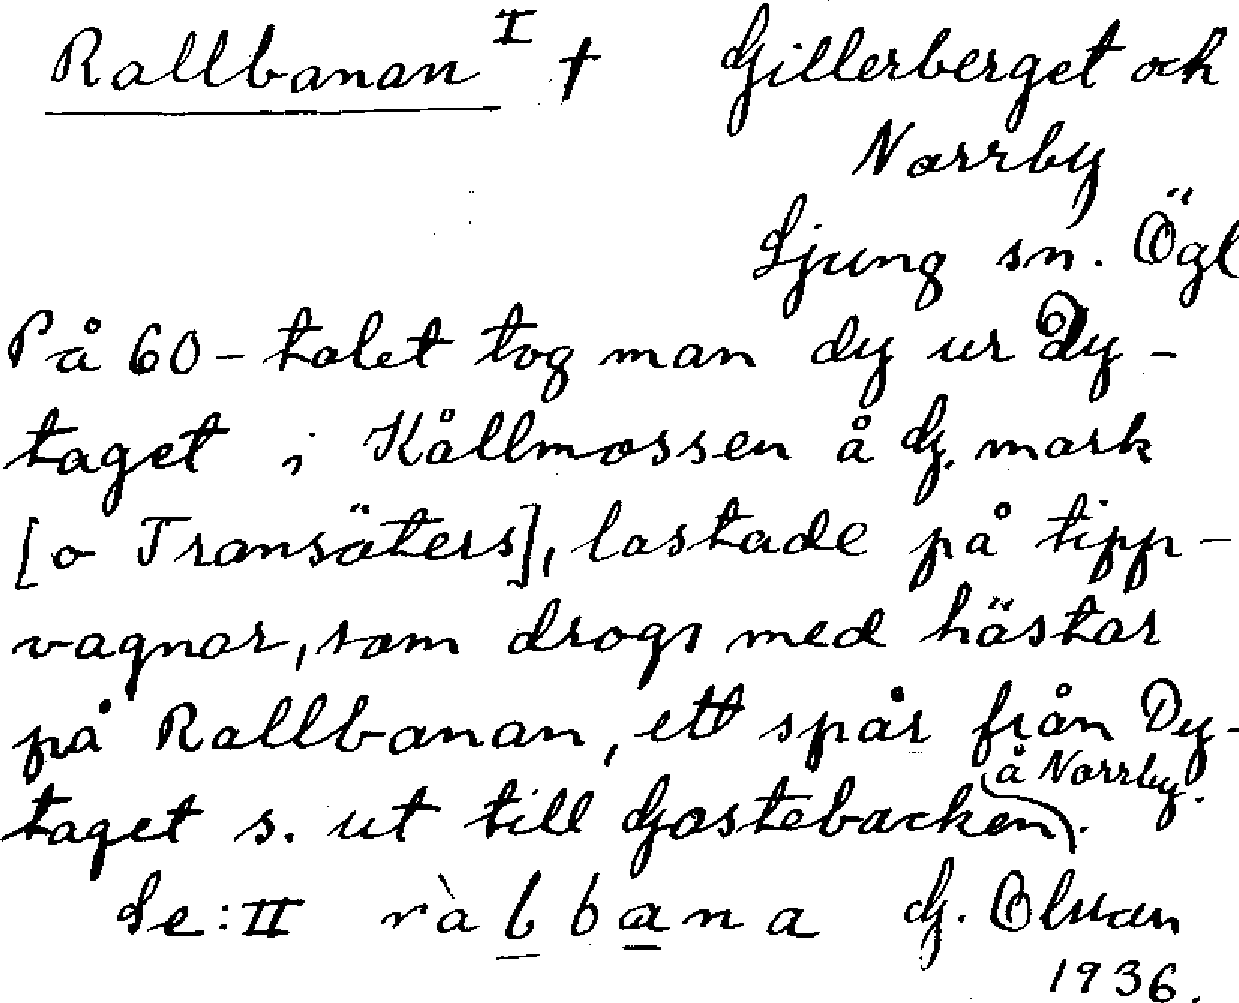 Rallbanan I † Gillerberget och
Norrby
Ljung sn. Ögl
På 60-talet tog man dy ur Dy-
taget i Kållmossen å G. mark
[o Transäters], lastade på tipp-
vagnar, som drogs med hästar
på Rallbanan, ett spår från Dy-
å Norrby.
taget s. ut till Gastebacken.
Se: II ràlbana G. Olsson
1936.